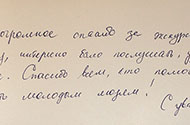 огромное спасибо за экскур
у, интересно было послушать, у
с. Спасибо всем, кто помог
ть молодым людям! С ува